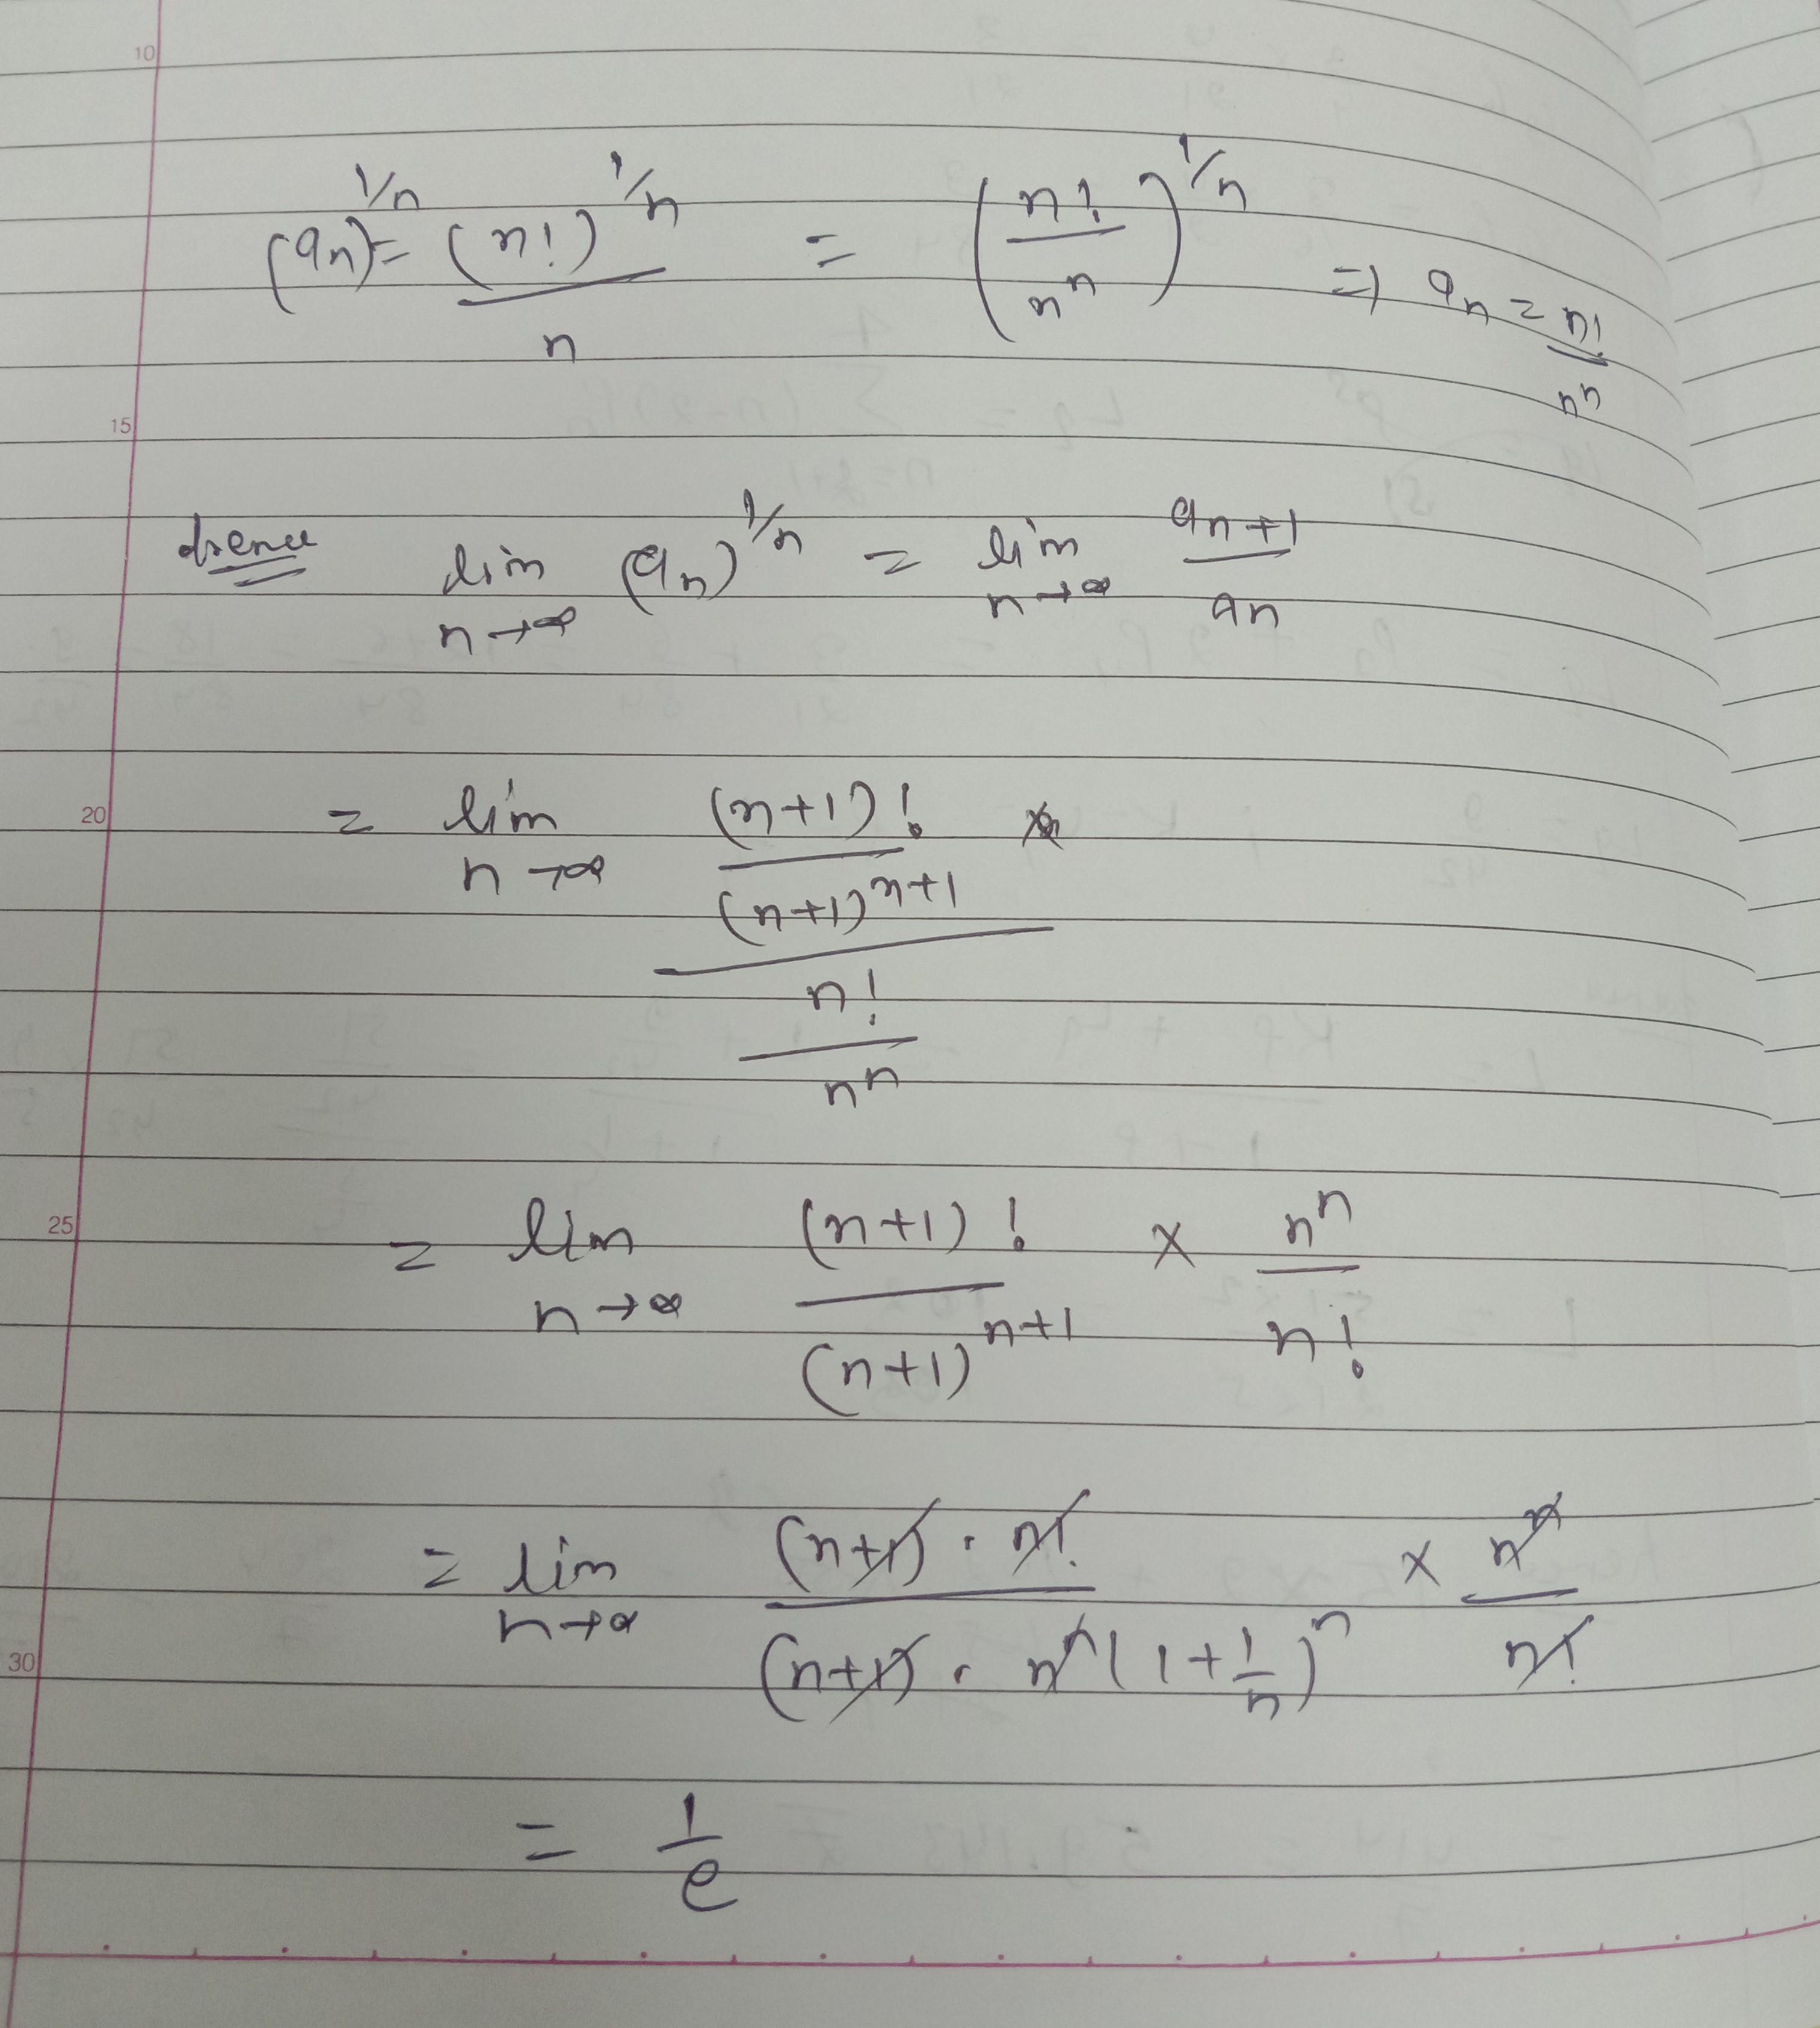 10
(aₙ)^{1/n} = (n!)^{1/n} / n = (n! / nⁿ)^{1/n} ⇒ aₙ = n! / nⁿ
15
Hence lim_{n→∞} (aₙ)^{1/n} = lim_{n→∞} a_{n+1} / aₙ
20
= lim_{n→∞} ((n+1)! / (n+1)^{n+1}) / (n! / nⁿ)
25
= lim_{n→∞} (n+1)! / (n+1)^{n+1} × nⁿ / n!
= lim_{n→∞} (n+1) · n! / ((n+1) · nⁿ (1 + 1/n)ⁿ) × nⁿ / n!
30
= 1/e